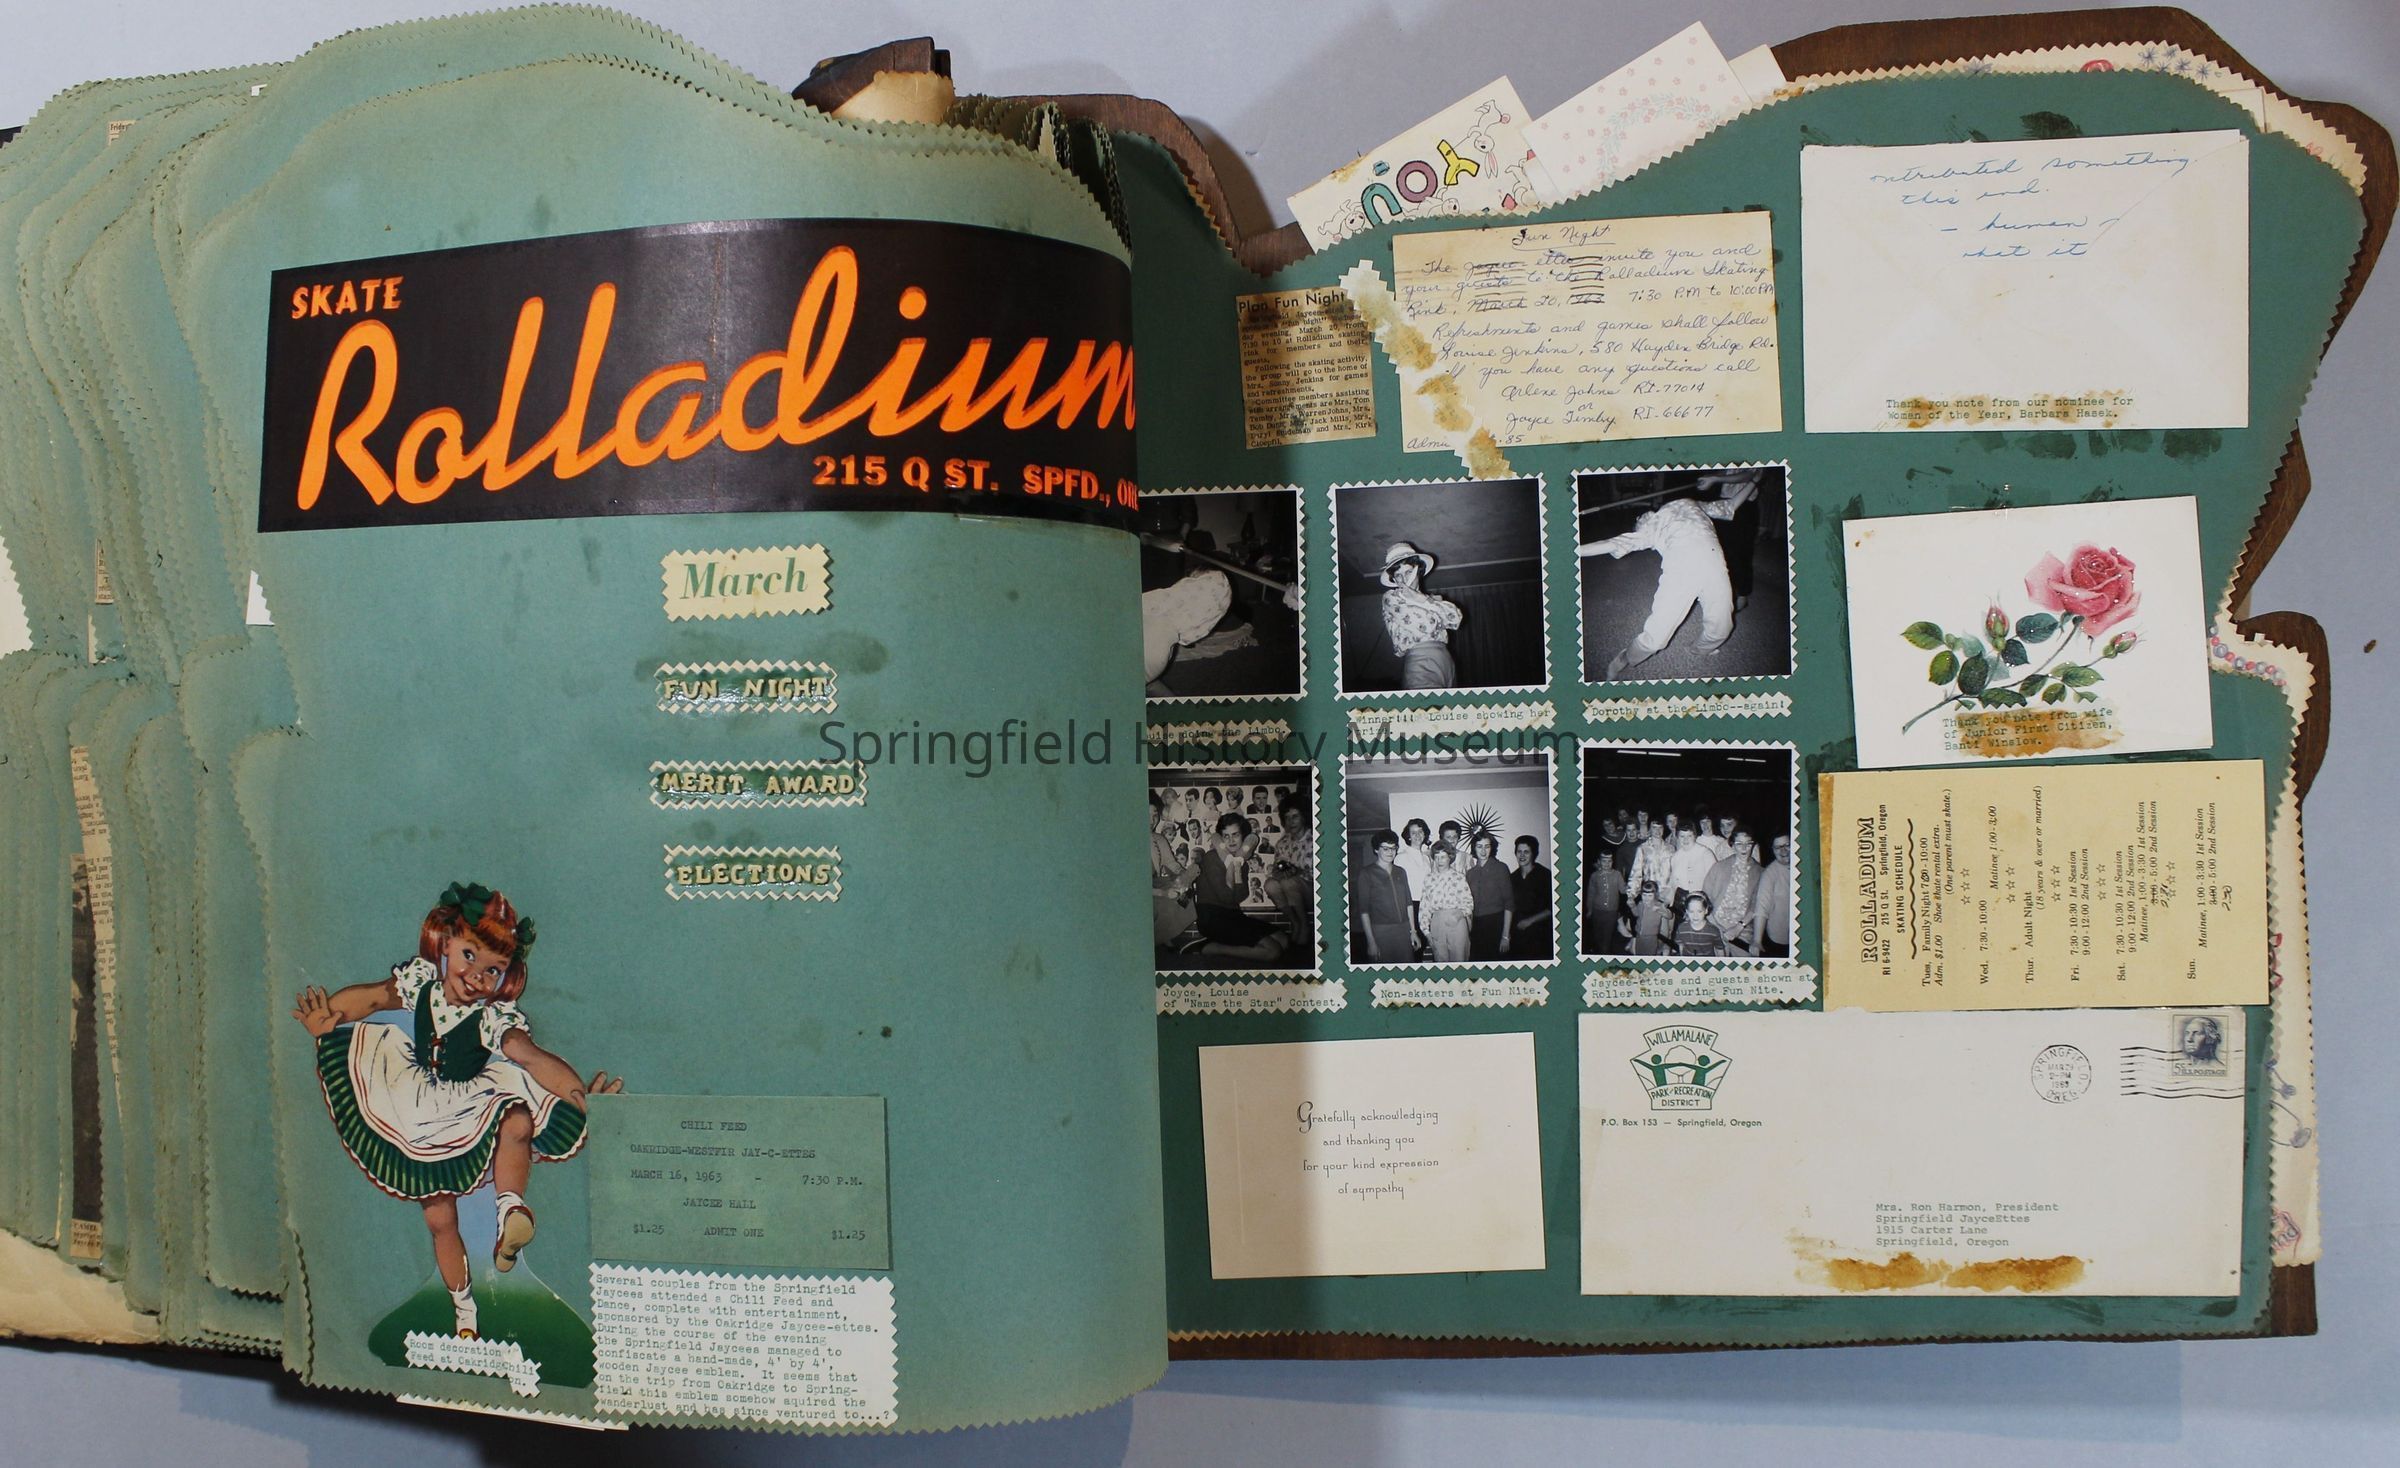 SKATE
Rolladium
215 Q ST. SPFD., ORE
March
FUN NIGHT
MERIT AWARD
ELECTIONS
CHILI FEED
OAKRIDGE-WESTFIR JAY-C-ETTES
MARCH 16, 1963 - 7:30 P.M.
JAYCEE HALL
$1.25 ADMIT ONE $1.25
Room decoration
Feed at Oakridge
Chili
on.
Several couples from the Springfield
Jaycees attended a Chili Feed and
Dance, complete with entertainment,
sponsored by the Oakridge Jaycee-ettes.
During the course of the evening
the Springfield Jaycees managed to
confiscate a hand-made, 4' by 4',
wooden Jaycee emblem. It seems that
on the trip from Oakridge to Spring-
field this emblem somehow aquired the
wanderlust and has since ventured to...?
Springfield History Museum
Friday
CAMEL
YOU
Plan Fun Night
Springfield Jaycee-ettes will
sponsor a "fun night" Wednes-
day evening, March 20, from
7:30 to 10 at Rolladium skating
rink for members and their
guests.
Following the skating activity,
the group will go to the home of
Mrs. Sonny Jenkins for games
and refreshments.
Committee members assisting
with arrangements are Mrs. Tom
Temby, Mrs. Warren Johns, Mrs.
Bob Dunn, Mrs. Jack Mills, Mrs.
Daryl Studeman and Mrs. Kirk
Cloepfil.
Fun Night
The Jaycee-ettes invite you and
your guests to the Rolladium Skating
Rink, March 20, 1963 7:30 P.M to 10:00 P.M
Refreshments and games shall follow
Louise Jenkins, 580 Hayden Bridge Rd.
If you have any questions call
Arlene Johns RI-77014
or
Joyce Timby RI-66677
Admi .85
ontributed something
this end.
- human
what it
Thank you note from our nominee for
Women of the Year, Barbara Hasek.
uise doing the Limbo.
Winner!!! Louise showing her
prize.
Dorothy at the Limbo--again!
Thank you note from wife
of Junior First Citizen,
Banti Winslow.
Joyce, Louise
of "Name the Star" Contest.
Non-skaters at Fun Nite.
Jaycee-ettes and guests shown at
Roller Rink during Fun Nite.
ROLLADIUM
RI 6-9422 215 Q St. Springfield, Oregon
SKATING SCHEDULE
Tues. Family Night 7:00 - 10:00
Adm. $1.00 Shoe skate rental extra.
(One parent must skate.)
☆☆☆
Wed. 7:30 - 10:00 Matinee 1:00-3:00
☆☆☆
Thur. Adult Night
(18 years & over or married)
☆☆☆
Fri. 7:30 - 10:30 1st Session
9:00 - 12:00 2nd Session
☆☆☆
Sat. 7:30 - 10:30 1st Session
9:00 - 12:00 2nd Session
Matinee, 1:00 - 3:30 1st Session
3:00 - 5:00 2nd Session
☆☆☆
Sun. Matinee, 1:00 - 3:30 1st Session
3:00 - 5:00 2nd Session
2:30
Gratefully acknowledging
and thanking you
for your kind expression
of sympathy
WILLAMALANE
PARK and RECREATION
DISTRICT
P.O. Box 153 — Springfield, Oregon
SPRINGFIELD
MAR 29
2 - PM
1963
OREG.
5c U.S. POSTAGE
Mrs. Ron Harmon, President
Springfield JayceEttes
1915 Carter Lane
Springfield, Oregon